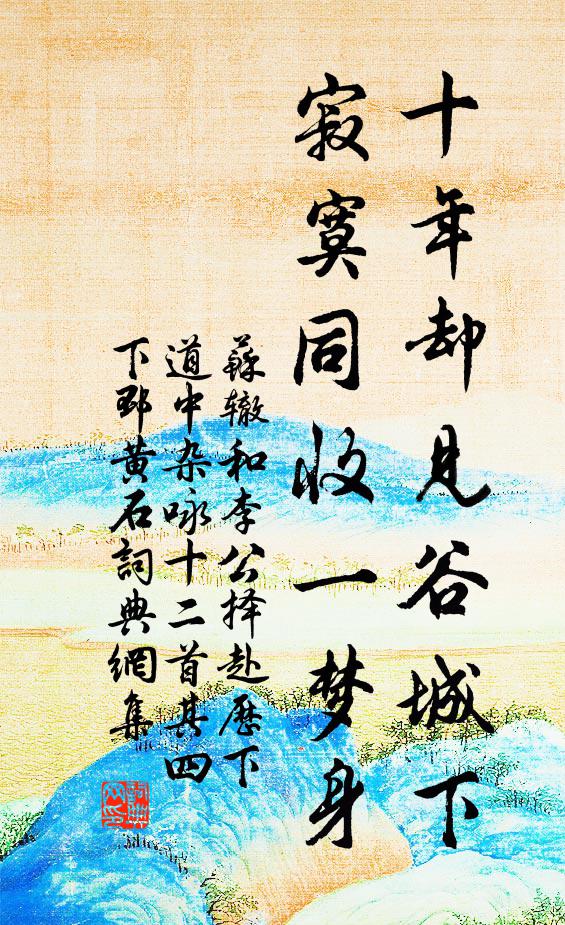 十年却见谷城下
寂寞同收一梦身
蘇辙和李公择赴歷下
道中杂咏十二首其四
下邳黄石詞典網集